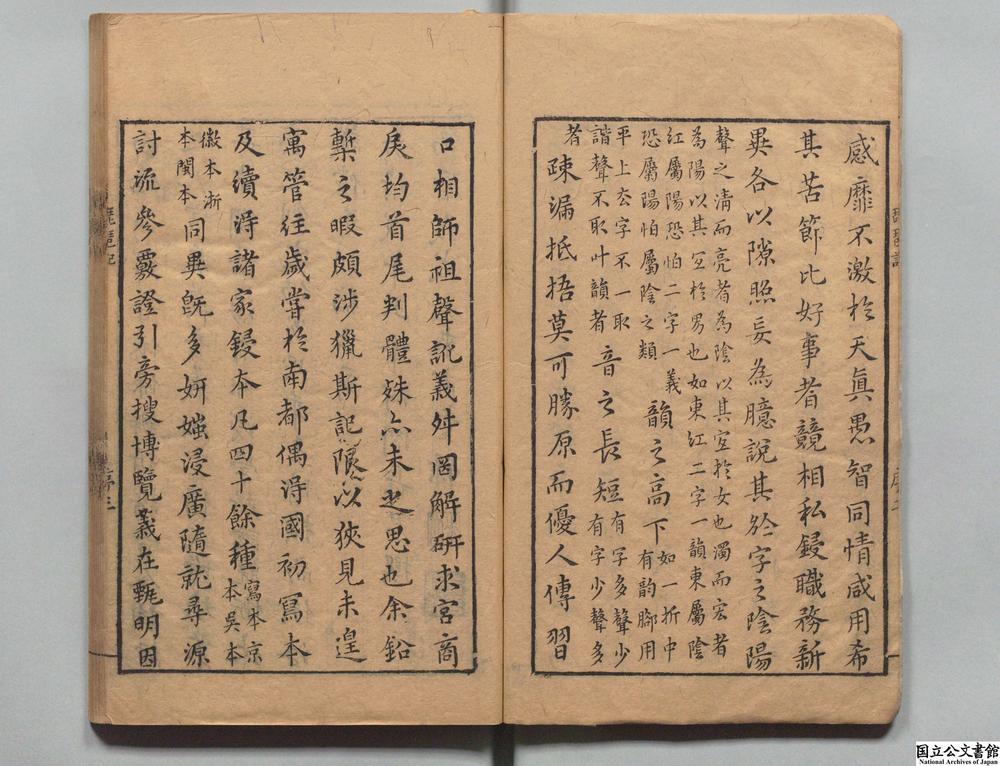 感靡不激於天眞愚智同情咸用希
其苦節比好事者競相私鋟職務新
異各以隙照妄為臆說其於字之陰陽
聲之淸而亮者為陰以其宜於女也濁而宏者
為陽以其宜於男也如東紅二字一韻東屬陰
紅屬陽恐怕二字一義
恐屬陽怕屬陰之類
韻之高下
如一折中
有韵腳用
平上去字不一取
諧聲不取叶韻者
音之長短
有字多聲少
有字少聲多
者
疎漏抵捂莫可勝原而優人傳習
口相師祖聲訛義舛罔解硏求宮商
戾均首尾判體殊亦未之思也余鉛
槧之暇頗涉獵斯記限以狹見未遑
寓管往歲嘗於南都偶淂國初寫本
及續淂諸家鋟本凡四十餘種
寫本京
本吳本
徽本浙
本閩本
同異旣多妍媸浸廣隨就尋源
討流參覈證引旁搜博覽義在甄明因
琵琶記
序三
国立公文書館
National Archives of Japan